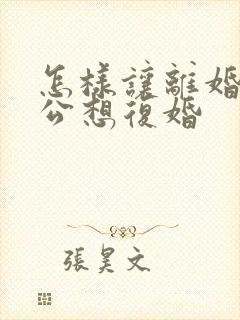 怎樣讓離婚
公想復婚
張昊文